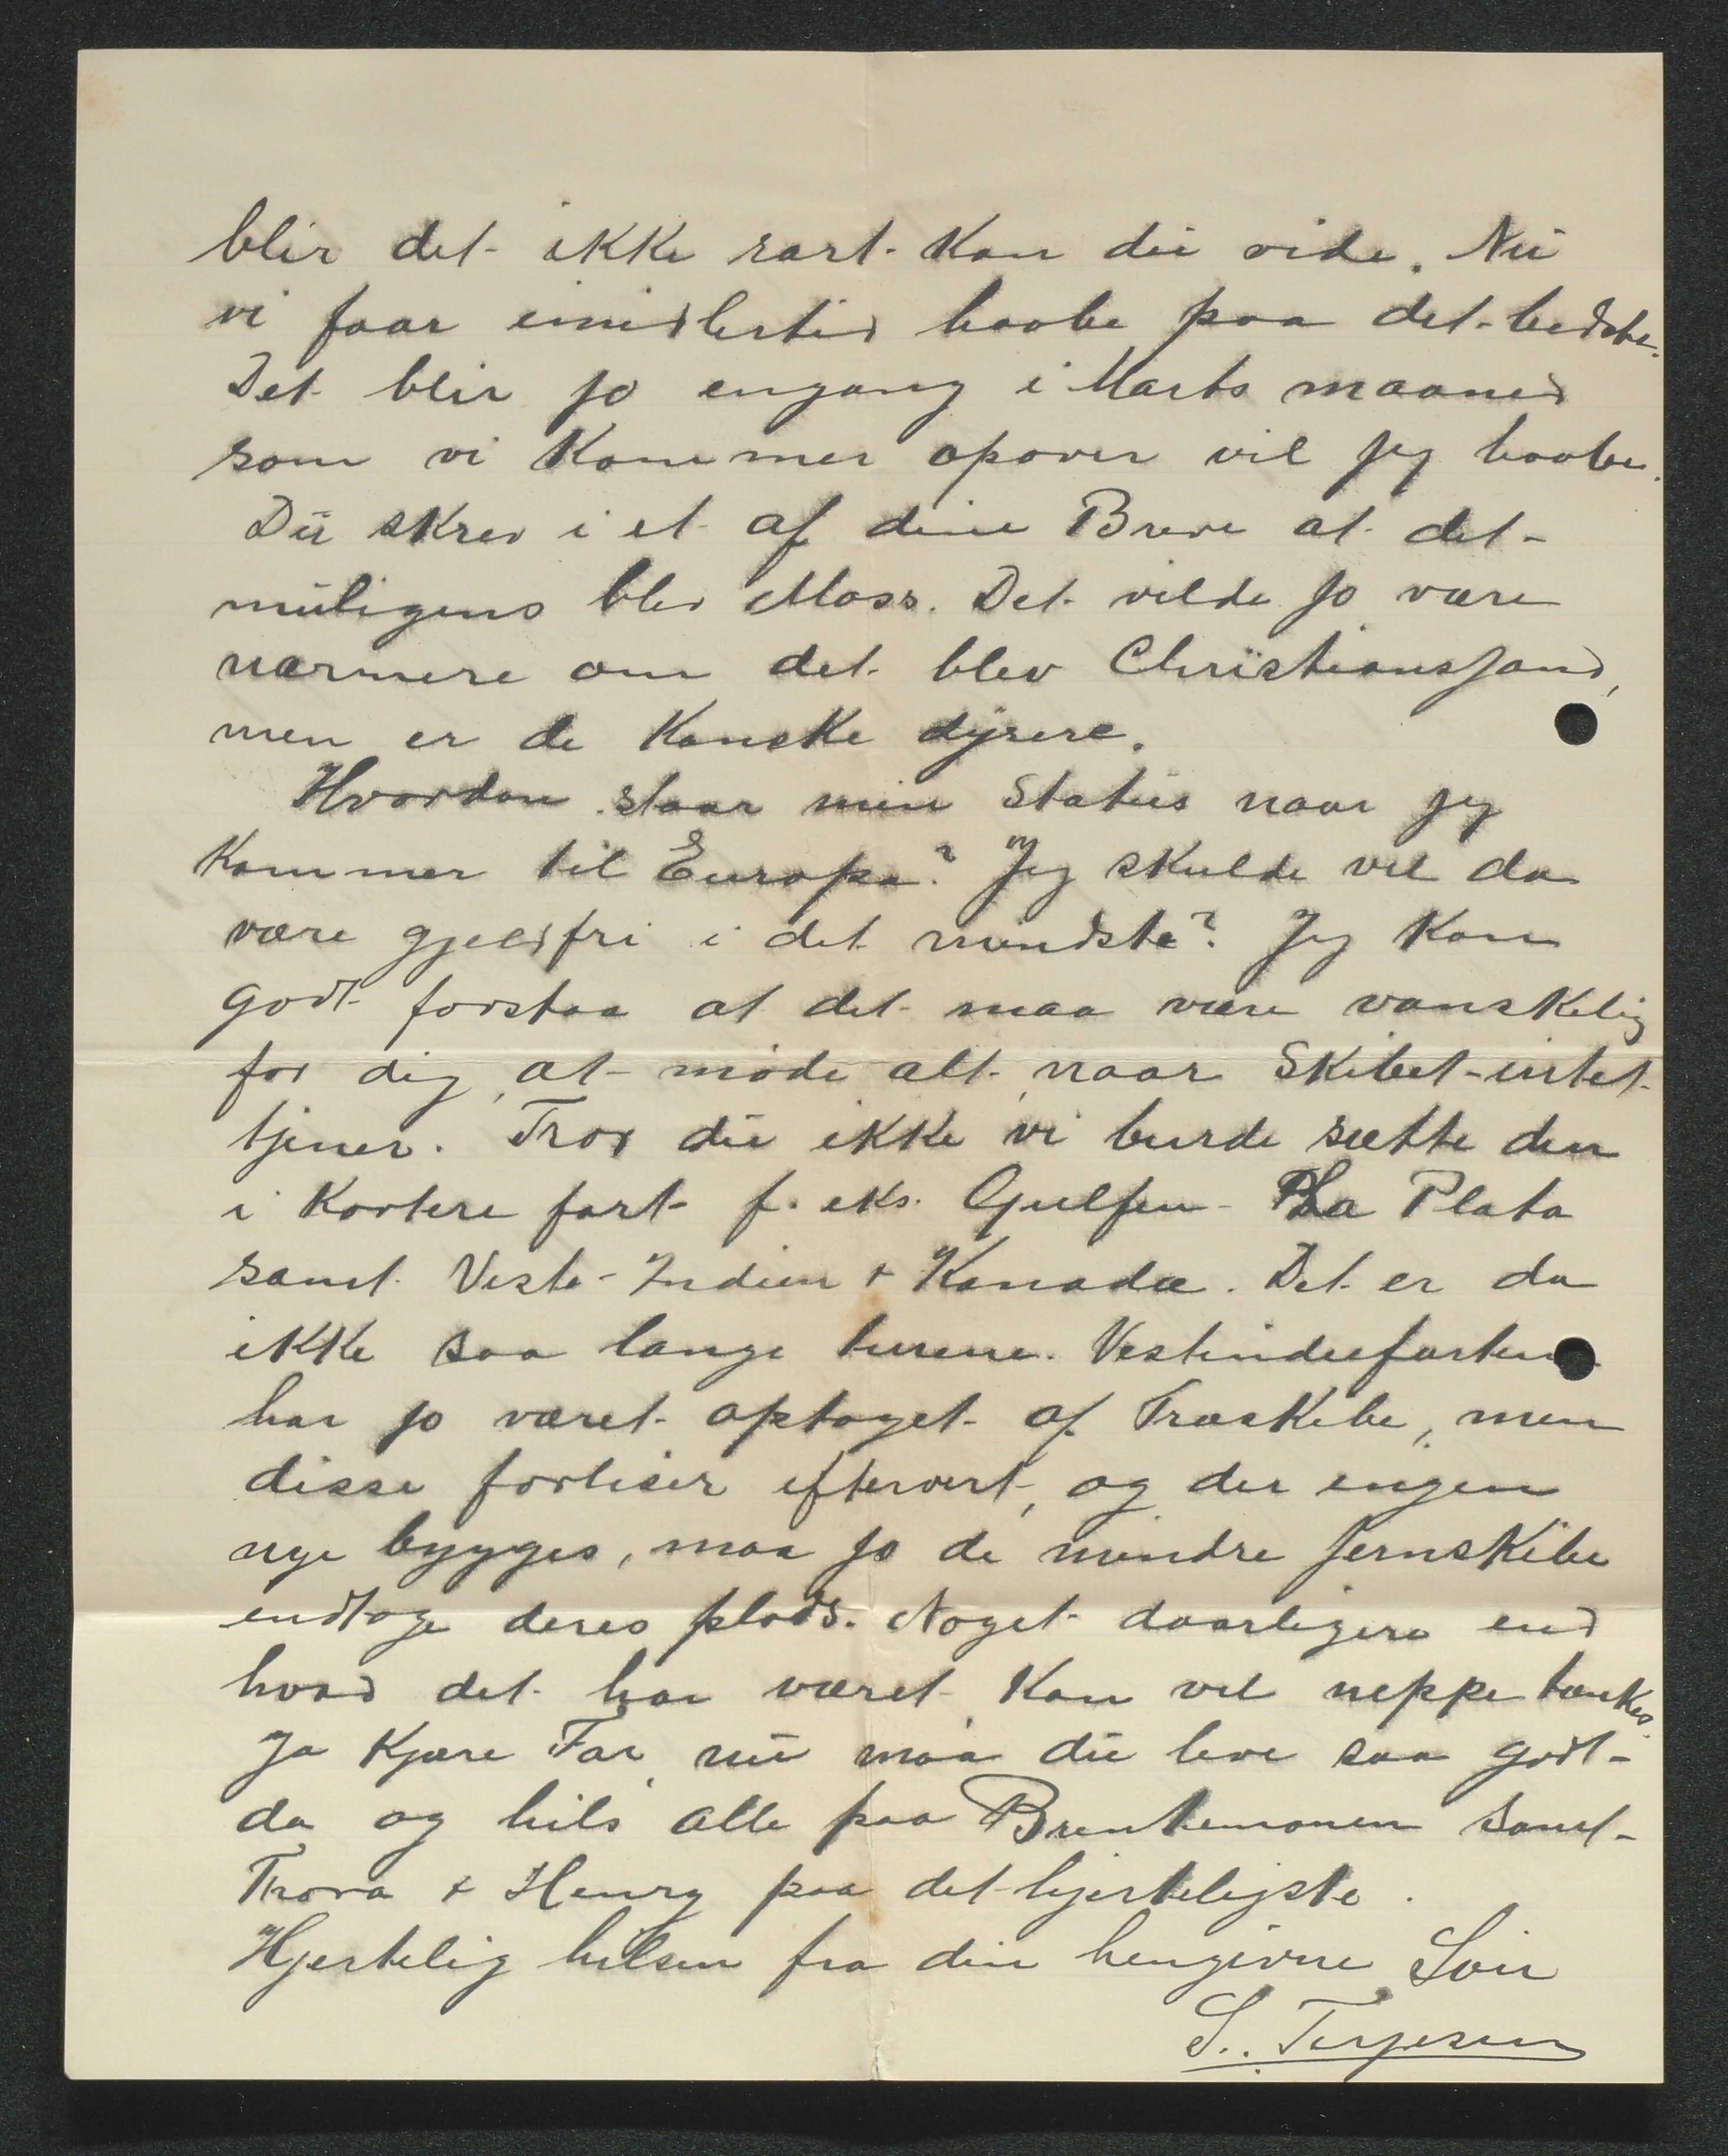 blir det ikke rart kan du vide. Nu
vi faar imidlertid haabe paa det bedste.
Det blir jo engang i Marts maaned
som vi kommer opover vil jeg haabe.
Du skrev i et af dine Breve at det
muligens blev Moss. Det vilde jo være
nærmere om det blev Christianssand,
men er de kanske dyrere.
Hvordan staar min Status naar jeg
kommer til Europa? Jeg skulde vel da
være gjeldfri i det mindste? Jeg kan
godt forstaa at det maa være vanskelig
for dig, at møde alt, naar Skibet intet
tjener. Tror du ikke vi burde sætte den
i kortere fart f. eks. Gulfen - La Plata
samt Vest-Indien & Kanada. Det er da
ikke saa lange turene. Vestindiefarten
har jo været optaget af Træskibe, men
disse forliser eftervert, og der ingen
nye bygges, maa jo de mindre Jernskibe
endtage deres plads. Noget daarligere end
hvad det har været, kan vel neppe tænkes.
Ja Kjære Far, nu maa du leve saa godt
da og hils alle paa samt
Thora & Henry paa det hjerteligste.
Hjertelig hilsen fra din hengivne Søn
S. Terjesen